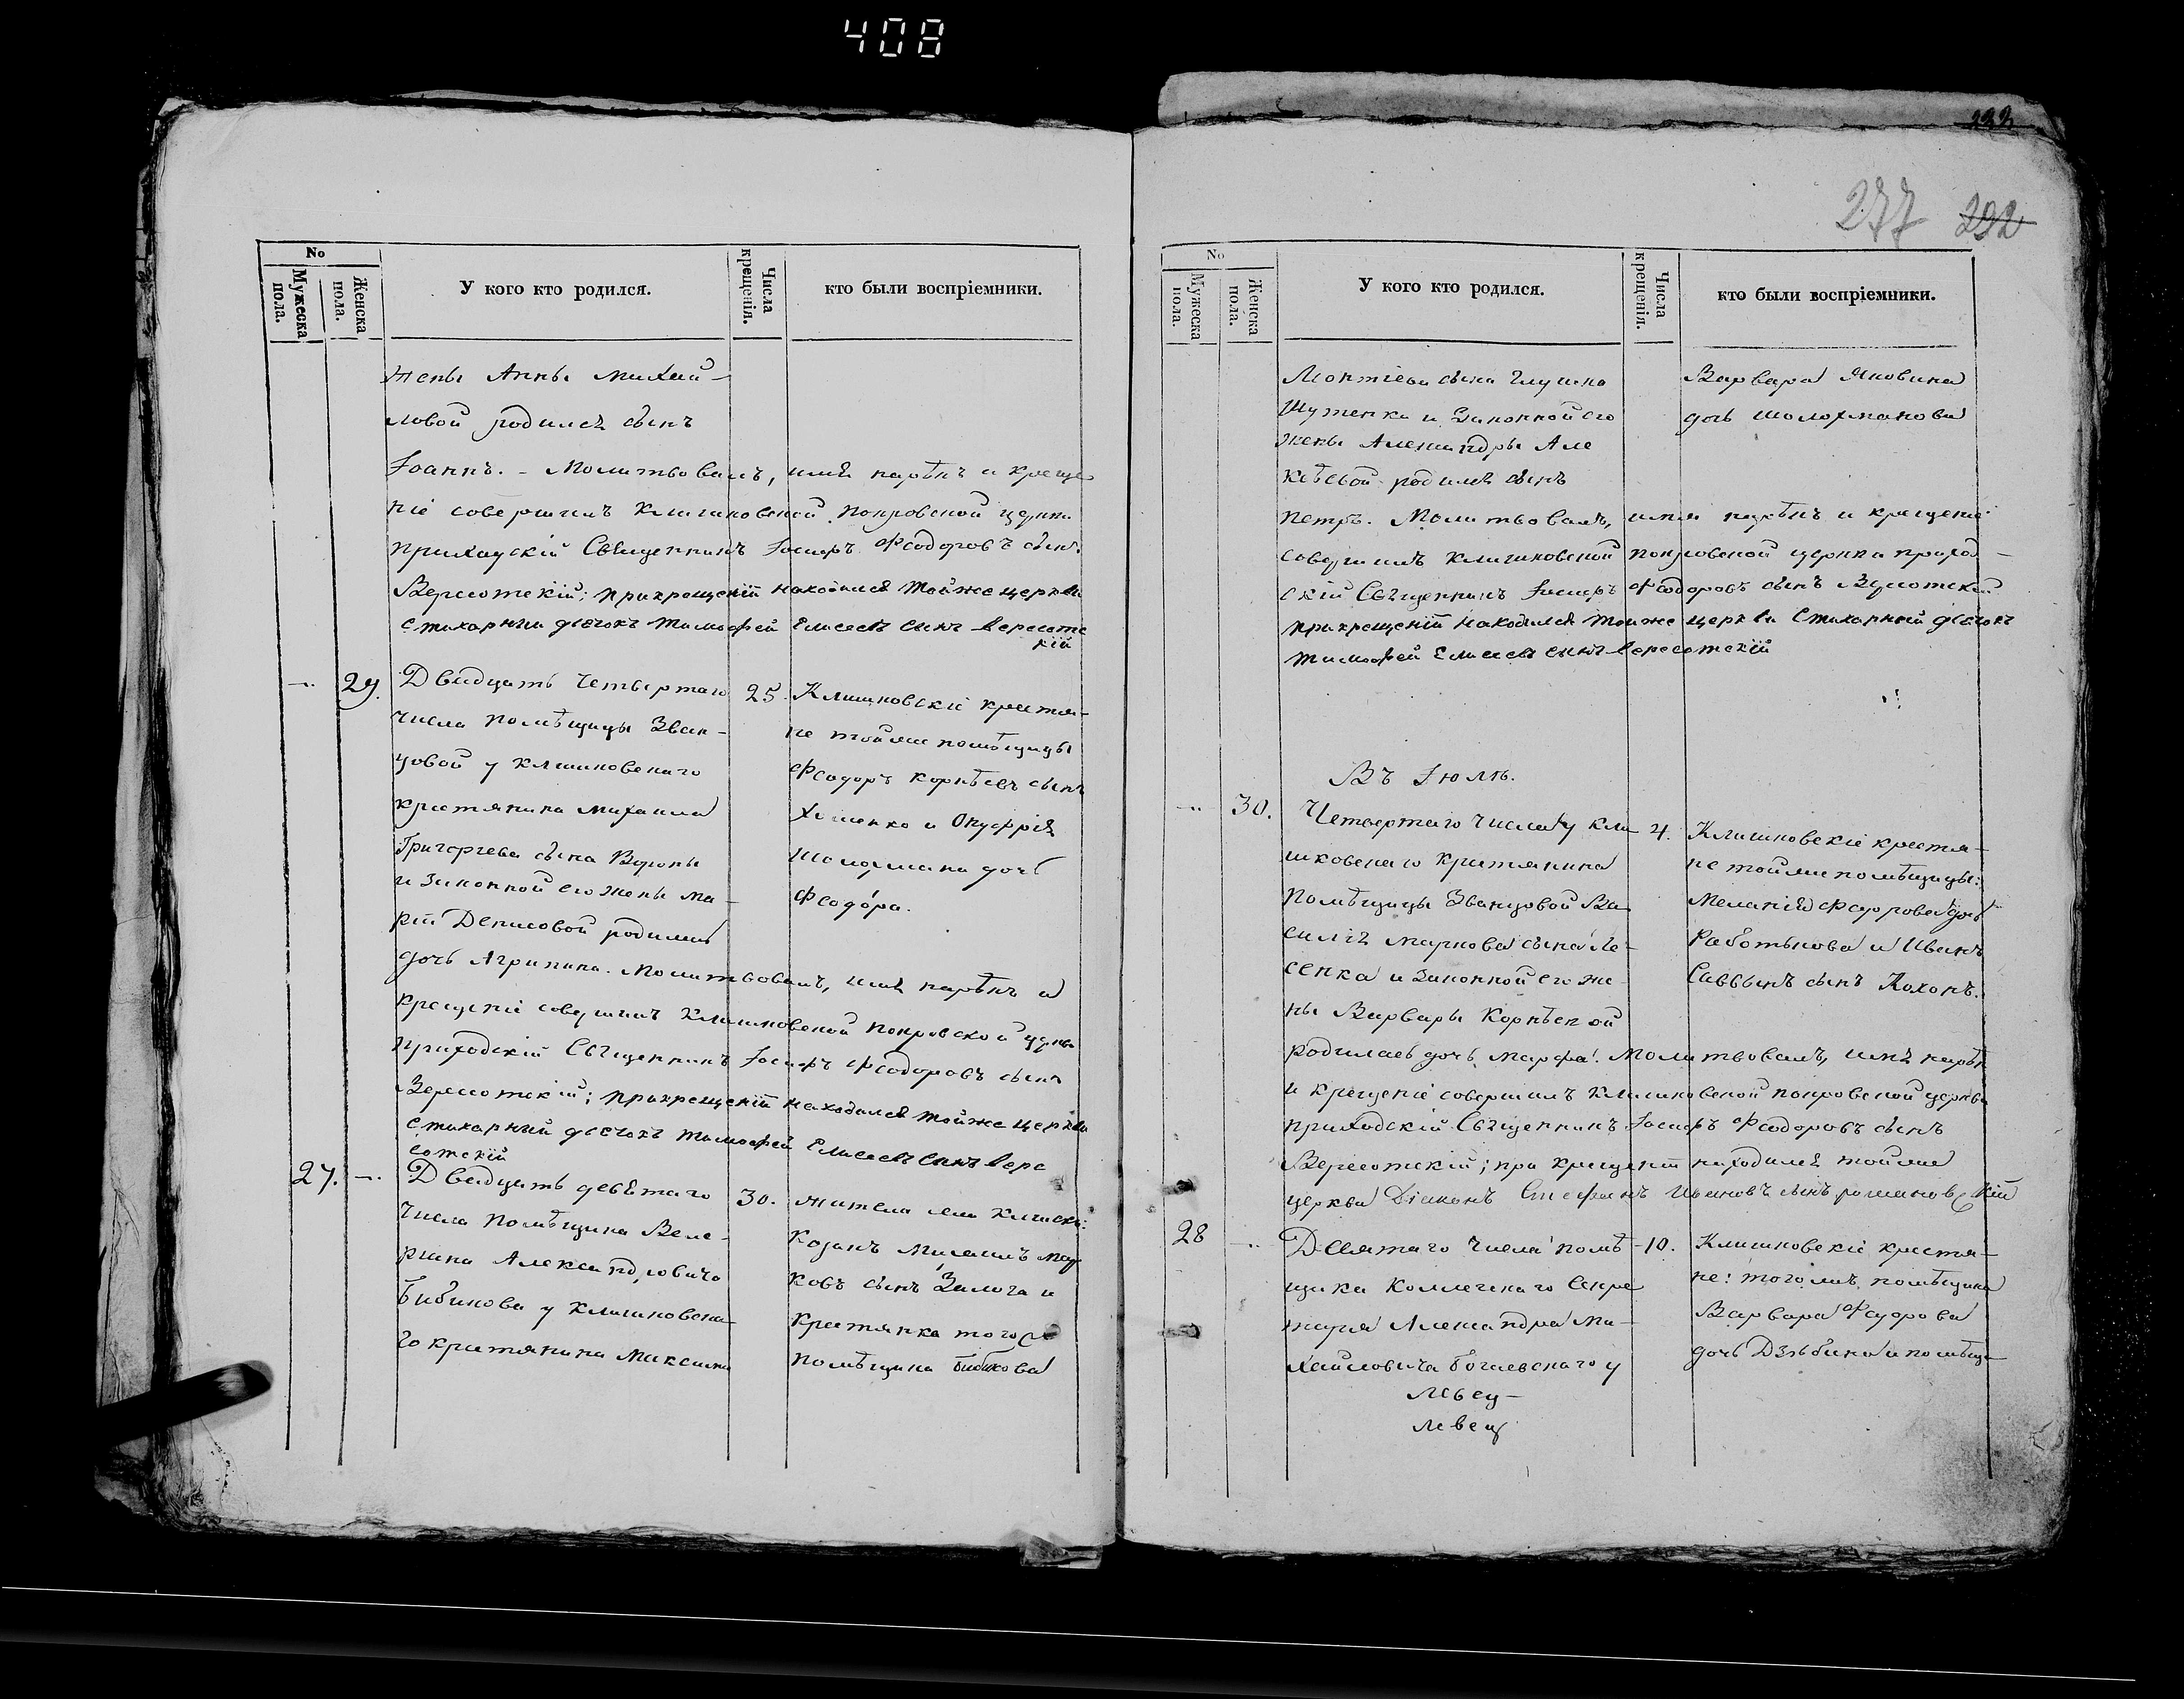 408
No
Мужеска пола.
Женска пола.
У кого кто родился.
Числа крещенія.
кто были воспріемники.
жены Анны Михай-
ловой родился сынъ
Іоаннъ. - Молитвовалъ, имя нарѣкъ и креще
ніе совершилъ Клишковской Покровской церкви
приходскій Священникъ Іосифъ Феодоровъ сынъ
Вересотскій; при крещеніи находился тойже церкви
стихарный дьячокъ Тимофей Елисеевъ сынъ Вересотс
кій
29. Двадцать четвертаго
числа помѣщицы Зван-
цовой у клишковскаго
крестянина Михаила
Григоргева сына Вороны
и законной его жены Ма-
ріи Денисовой родилась
дочь Агрипина. Молитвовалъ, имя нарѣкъ и
крещеніе совершилъ Клишковской Покровской церкви
приходскій Священникъ Іосифъ Феодоровъ сынъ
Вересотскій; при крещеніи находился тойже церкви
стихарный дьячокъ Тимофей Елисеевъ сынъ Вере
сотскій
25. Клишковскіе крестя-
не тойже помѣщицы
Феодоръ Корнѣевъ сынъ
и Онуфрія
Шолохмана дочь
Феодора.
27. Двадцать девятаго
числа помѣщика Вале-
ріана Александровича
Бибикова у клишковска-
го крестянина Максима
30. жители
Козакъ Михаилъ Мар
ковъ сынъ Залога и
крестянка тогоже
помѣщика Бибикова
222
277 292
No
Мужеска пола.
Женска пола.
У кого кто родился.
Числа крещенія.
кто были воспріемники.
Леонтіева сына Глушка
Шутенка и законной его
жены Александры Але
ксѣевой родился сынъ
Петръ. Молитвовалъ, имя нарѣкъ и крещеніе
совершилъ Клишковской Покровской церкви приход-
скій Священникъ Іосифъ Феодоровъ сынъ Вересотскій
при крещеніи находился тойже церкви стихарный дьячокъ
Тимофей Елисеевъ сынъ Вересотскій
Варвара Яковина
дочь Шолохманова
Въ Іюлѣ.
30. Четвертаго числа у кли
шковскаго крестянина
помѣщицы Званцовой Ва
силія Маркова сына Ле-
сенка и законной его же-
ны Варвары Корнѣевой
родилась дочь Марфа. Молитвовалъ, имя нарѣкъ
и крещеніе совершилъ Клишковской Покровской церкви
приходскій Священникъ Іосифъ Феодоровъ сынъ
Вересотскій; при крещеніи находился тойже
церкви Діаконъ Стефанъ Ивановъ сынъ Романовскій
4. Клишковскіе крестя-
не тойже помѣщицы:
Меланія Федорова дочь
Работькова и Иванъ
Саввинъ сынъ Кохонъ.
28 Десятаго числа помѣ-
щика Коллежскаго Секре
таря Александра Ми-
хайловича Богаевскаго у
10. Клишковскіе крестя-
не: тогожъ помѣщика
Варвара Федорова
дочь Дзюбина и помѣщи